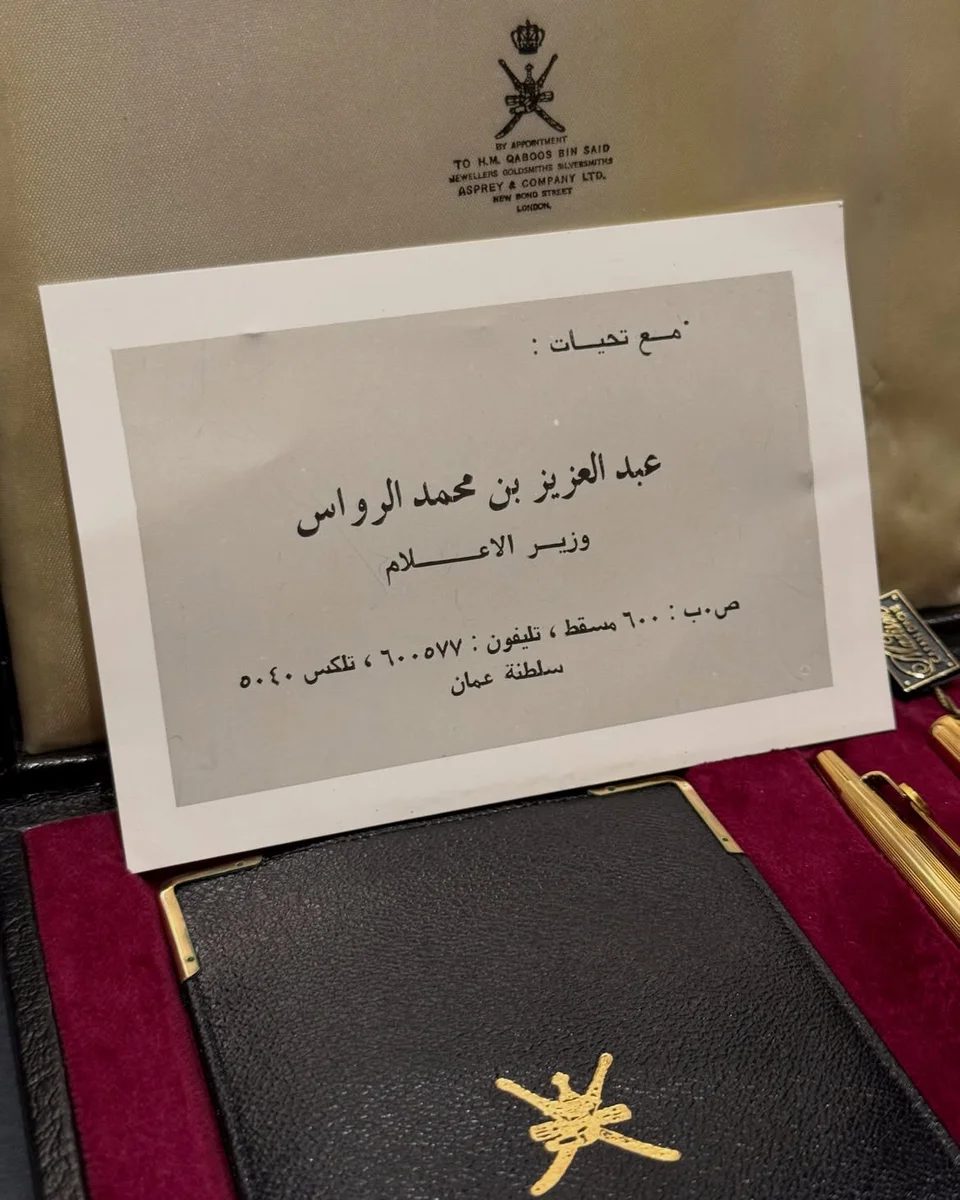 BY APPOINTMENT
TO H.M. QABOOS BIN SAID
JEWELLERS GOLDSMITHS SILVERSMITHS
ASPREY & COMPANY LTD.
NEW BOND STREET
LONDON.
مـع تحيـات :
عبد العزيز بن محمد الرواس
وزيـر الاعـــلام
ص.ب : ٦٠٠ مسقط ، تليفون : ٦٠٠٥٧٧ ، تلكس ٥٠٤٠
سلطنة عمان